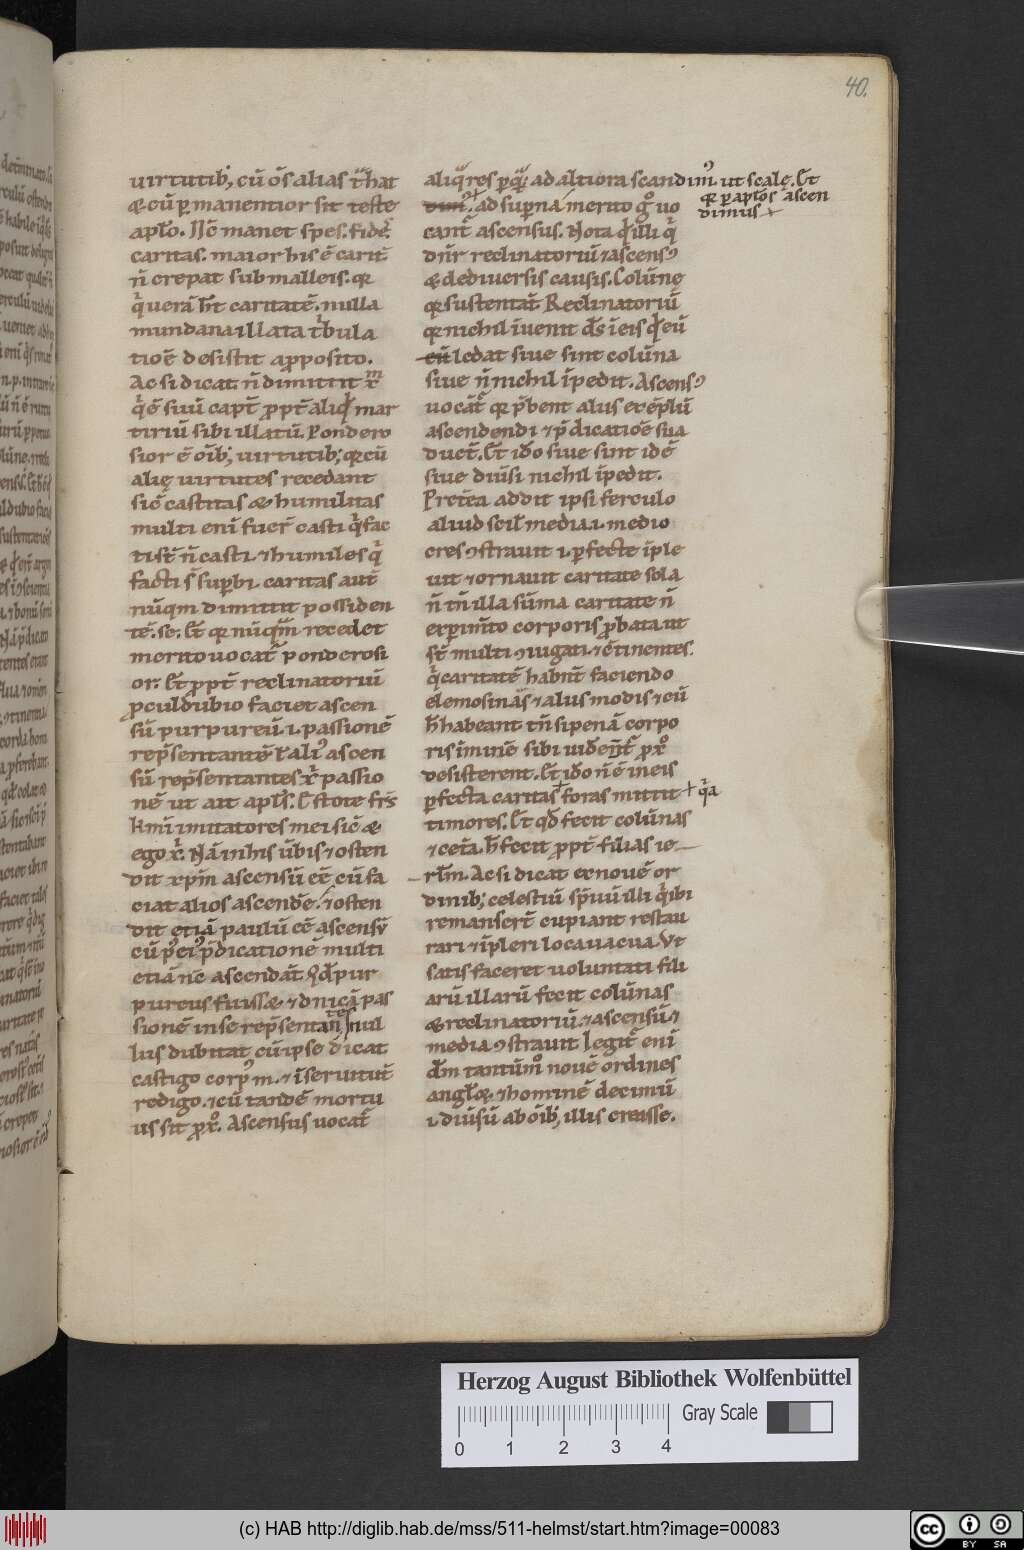 40.
uirtutib; cũ oˉs alias tͣhat
&cũ p̲manentior sit teste
apl̃o. Nc̃ manet spes. fidẽ.
caritas. maior his ẽ carit̃
ñ crepat sub malleis. qꝛ
qͥ uerã hñt caritatẽ. nulla
mundana illata tͥbula
tioẽ desistit a p̲posito.
Ac si dicat ñ dimittit xͫ
qͥ ẽ suũ capt̃ ꝓpt̃ aliqd̃ mar
tiriũ sibi illatũ. Pondero
sior ẽ oĩb; uirtutib; qꝛ cũ
alię uirtutes recedant
sic̃ castitas & humilitas
multi enĩ fuer̃ casti qͥ fac
ti st̃ ñ casti. ⁊humiles qͥ
facti s̃ sup̲bi. caritas aut̃
nũqm dimittit possiden
tẽ. se. Et̃ qꝛ nũqͫ recedet
merito uocat̃ ponderosi
or. Et̃ ꝓpt̃ reclinatoriũ
ꝓculdubio faciet ascen
sũ purpureũ .i. passionẽ
rep̃sentantẽ ł aliˀ ascen
sũ rep̃sentantes xͥ passio
nẽ ut ait apl̃s. Estote fr̃s
kmĩ imitatores mei sic̃ &
ego xͥ. Nã in his ũbis ⁊osten
dit xp̃m ascensũ eẽ cũ fa
ciat alios ascende. ⁊osten
dit etiã paulũ eẽ ascensũ
cũ p̲ eiˀ p̃dicationẽ multi
etiã nc̃ ascendãt. Qd̃ pur
pureus fuiss& ⁊dnicã pas
sionẽ in se rep̃sentant̃ nul
lus dubitat cũ ipse dicat
castigo corpˀ m. ⁊ ĩ seruitut̃
redigo. ⁊cũ tandẽ mortu
us sit ꝓ xͦ. Ascensus uocat̃
aliqͣ res p̲ qͣ ad altiora scandimˀ. ut scalę. Et̃
qꝛ p̲ apl̃os ascen
dimus +
dimˀ. + ad sup̲na merito gͦ uo
cant̃ ascensus. Nota qͥ illi qͥ
dñr reclinatoriũ ⁊ascensꝰ
& de diuersis causis. Colũnę
qꝛ sustentat̃ Reclinatoriũ
qꝛ nichil ĩuenit ds̃ ĩ eis qd̃ eũ
eũ lędat siue sint colũna
siue ñ nichil ĩpedit. Ascensꝰ
uocãt̃ qꝛ p̃bent aliis exẽplũ
ascendendi ⁊ p̃dicatiõe sua
duct̃. Et̃ iđo siue sint idẽ
siue diũsi nichil ĩpedit.
Pret̃ea addit ipsi ferculo
aliud scil̃ media .i. medio
cres ꝯstrauit .i. p̲fecte ĩple
uit ⁊ornauit caritate sola
ñ tñ illa sũma caritate ñ
exp̲im̃to corporis ꝓbata ut
st̃ multi ꝯiugati. ⁊ ꝯtinentes.
qͥ caritatẽ habñt faciendo
elemosinas ⁊ aliis modis ⁊cũ
h̃ habeant tñ si penã corpo
ris ĩminẽ sibi uident̃ ꝓ xͦ
desisterent. Et̃ iđo ñ ẽ in eis
p̲fecta caritas + foras mittit + qͥa
timores. Et̃ qd̃ fecit colũnas
⁊ cet̃a. h̃ fecit ꝓpt̃ filias ie
rl̃m. Ac si dicat ex nouẽ or
dinib; celestiũ sp̃uũ illi qͥ ibi
remanser̃t cupiant restau
rari ⁊ ĩpleri loca uacua. Vt
satis faceret uoluntati fili
arũ illarũ fecit colũnas
& reclinatoriũ. ⁊ascensũ ⁊
media ꝯstrauit legit̃ enĩ
dm̃ tantũmͦ nouẽ ordines
anglo̾ꝝ. ⁊hominẽ decimũ
.i. diũsũ ab oĩb; illis creasse.
Herzog August Bibliothek Wolfenbüttel
Gray Scale
0 1 2 3 4
(c) HAB http://diglib.hab.de/mss/511-helmst/start.htm?image=00083
cc BY SA